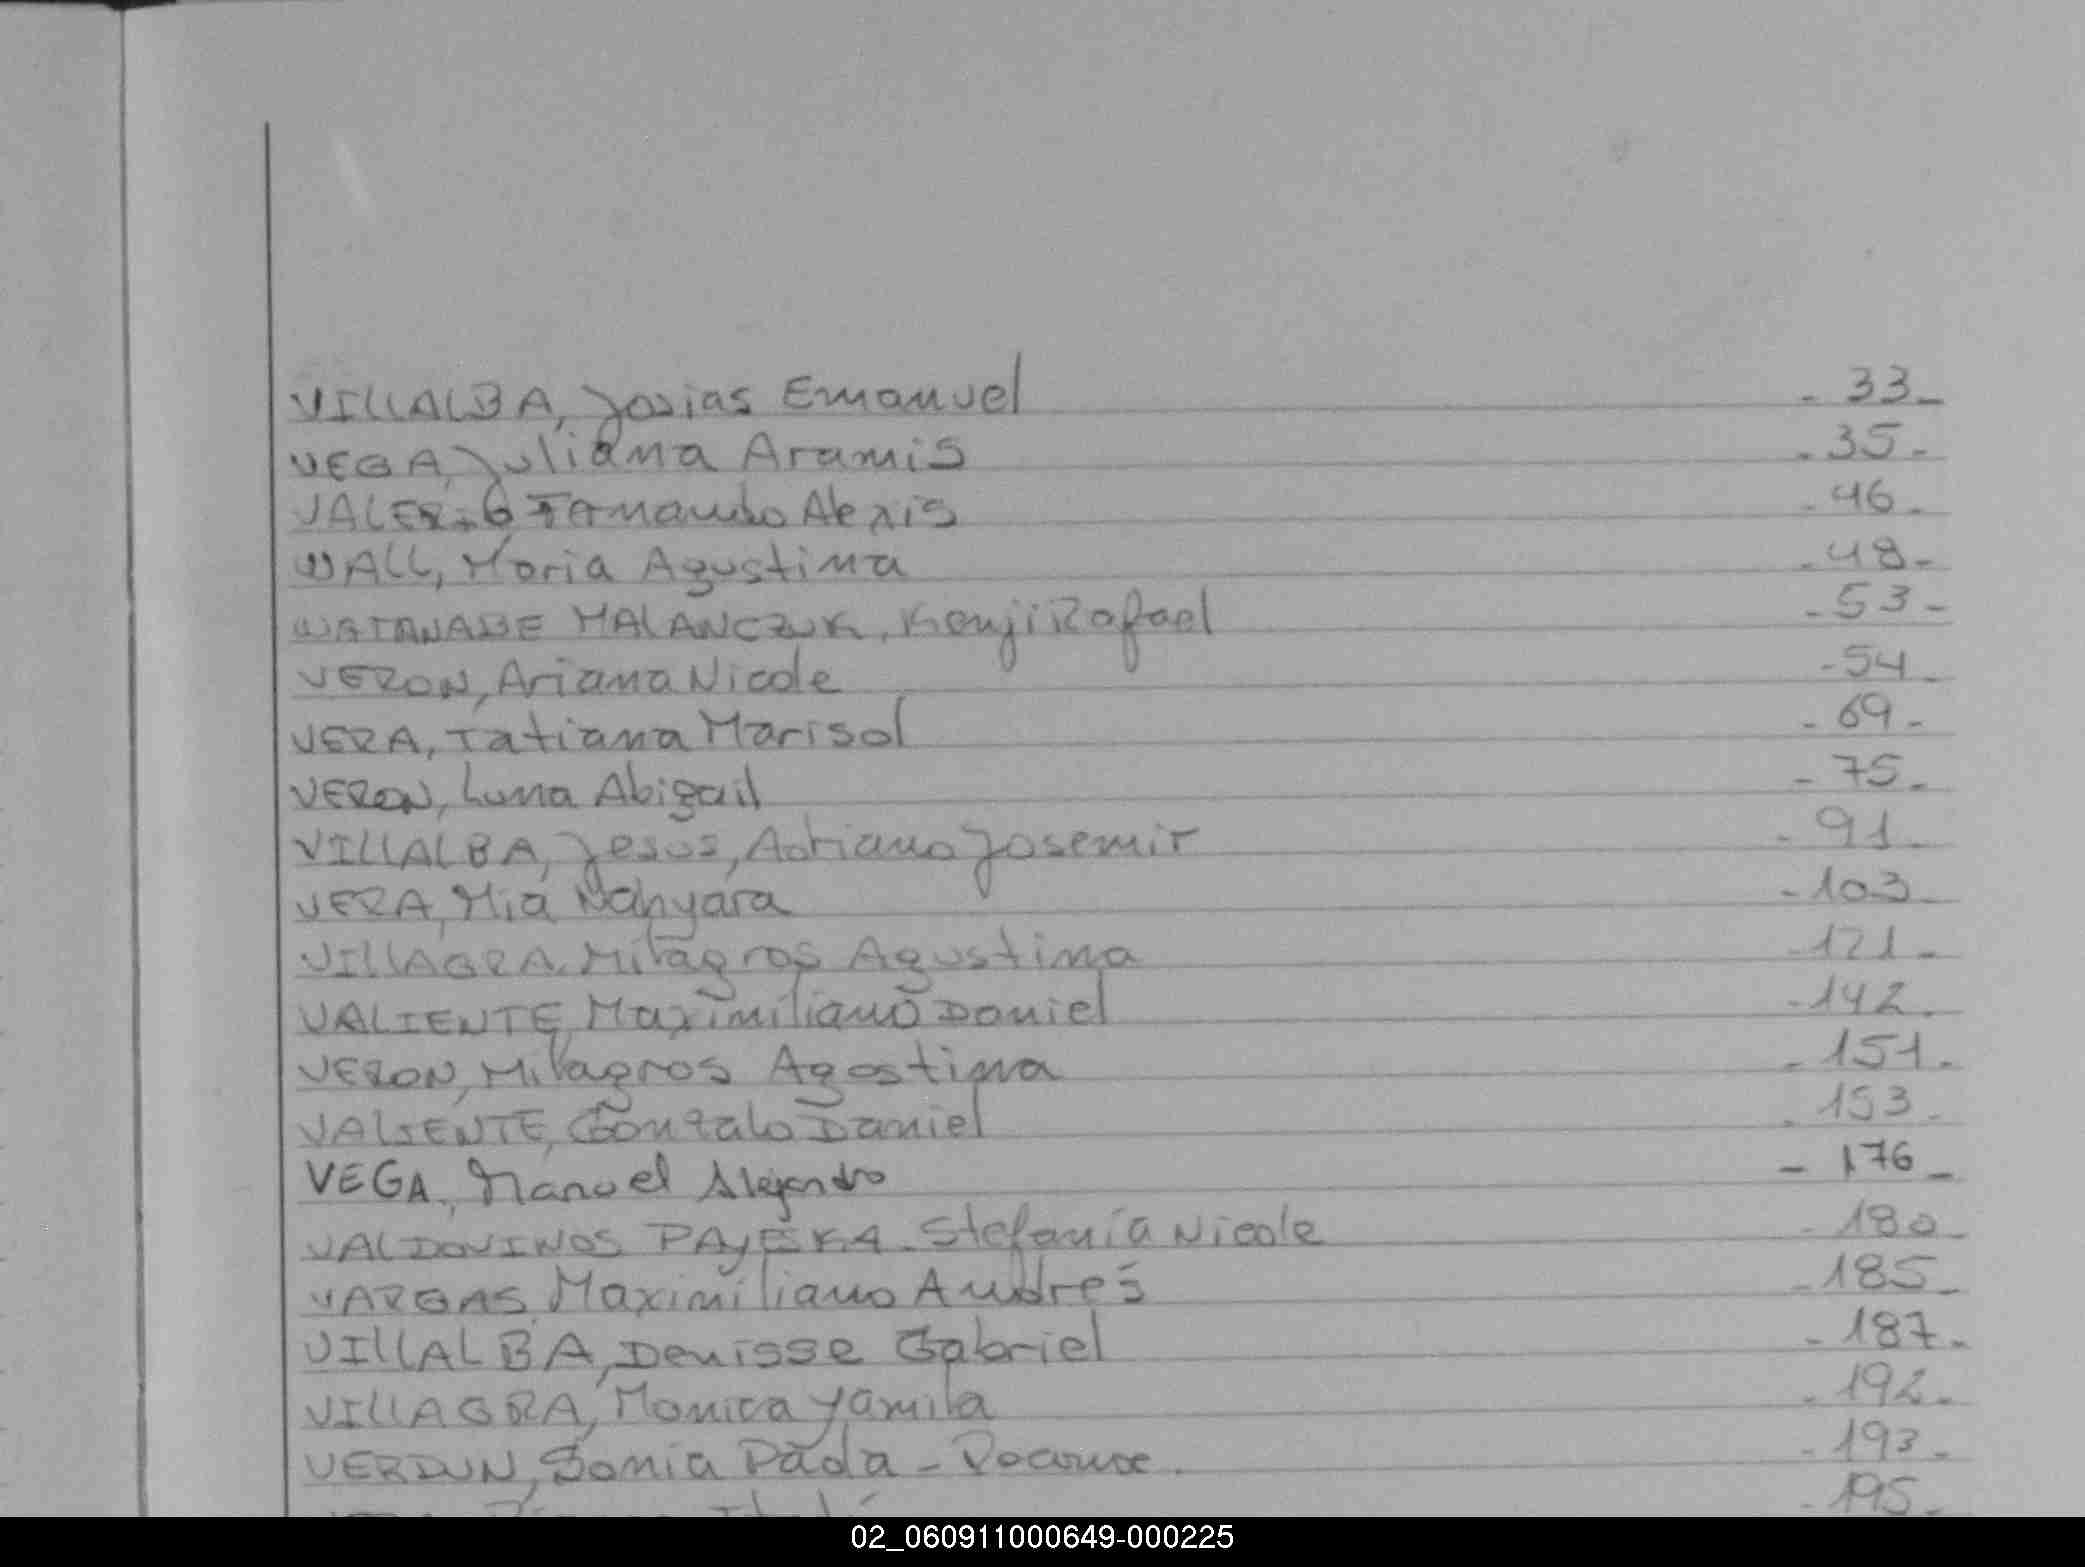 VILLALBA, Josias Emanuel - 33 -
VEGA, Juliana Aramis - 35 -
Fernando Alexis - 46 -
WALL, Moria Agustina - 48 -
WATANABE MALANCZUK, Kenji Rafael - 53 -
VERON, Ariana Nicole - 54 -
VERA, Tatiana Marisol - 69 -
VERON, Luna Abigail - 75 -
VILLALBA, Jesus, Adriano Josemir - 91 -
VERA, Mia Nahyara - 103 -
VILLAGRA, Milagros Agustina - 121 -
VALIENTE, Maximiliano Daniel - 142 -
VERON, Milagros Agostina - 151 -
VALIENTE, Gonzalo Daniel - 153 -
VEGA, Manuel Alejandro - 176 -
VALDOVINOS Stefanía Nicole - 180 -
VARGAS, Maximiliano Andrés - 185 -
VILLALBA, Denisse Gabriel - 187 -
VILLAGRA, Monica Yamila - 192 -
VERDUN, Sonia - 193 -
- 195 -
02_060911000649-000225